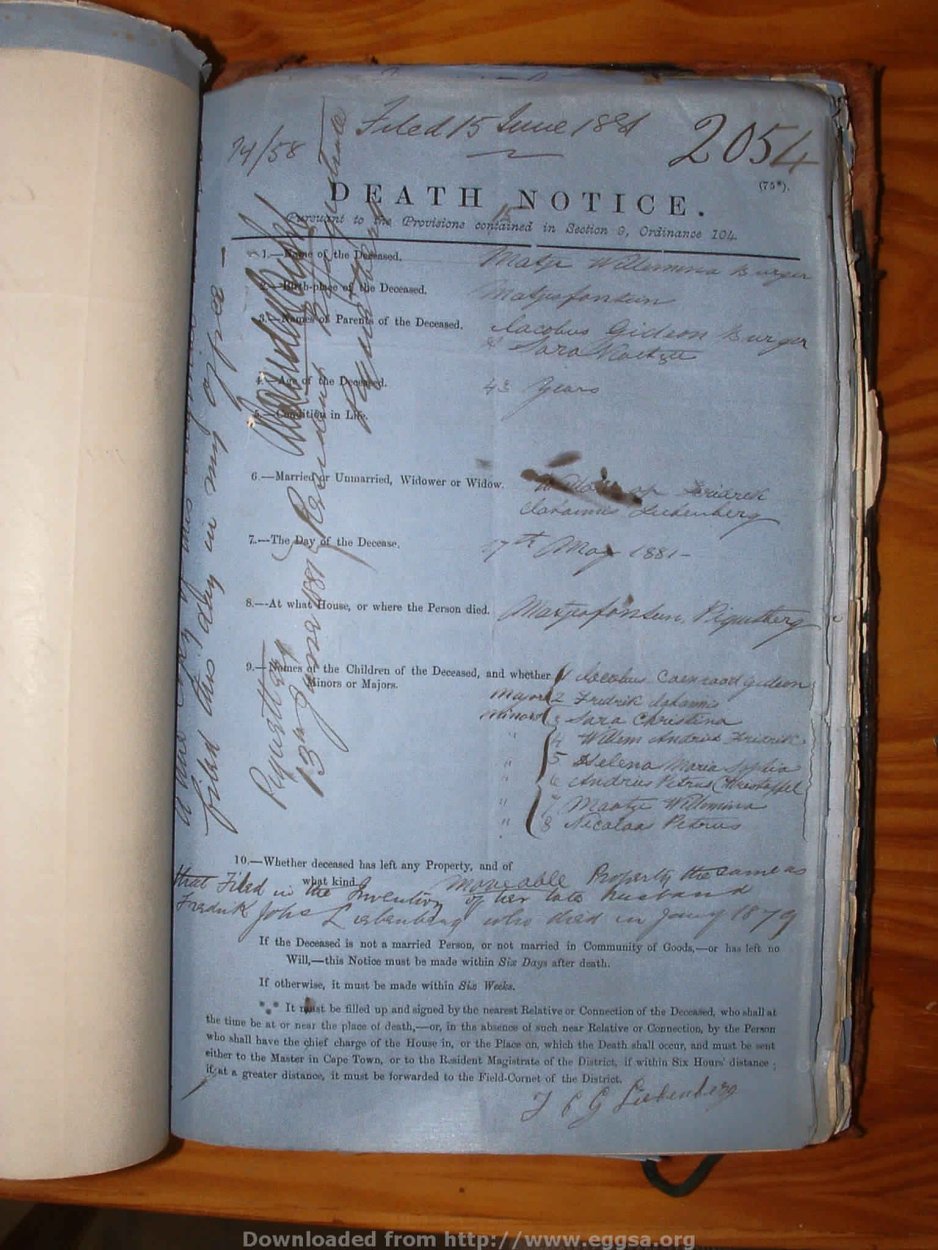 Filed 15 June 1881
2054
74/58
(75*).
DEATH NOTICE.
Pursuant to the Provisions contained in Section 9, Ordinance 104.
1.—Name of the Deceased. Willemina Burger
2.—Birth-place of the Deceased. Matjesfontein
3.—Names of Parents of the Deceased. Jacobus Gideon Burger
& Sara
4.—Age of the Deceased. 43 Years
5.—Condition in Life.
6.—Married or Unmarried, Widower or Widow. of
Liebenberg
7.—The Day of the Decease. May 1881-
8.—At what House, or where the Person died. Piquetberg
9.—Names of the Children of the Deceased, and whether 1 Jacobus Gideon
Minors or Majors. Majors 2 Fredrik Johannis
Minors 3 Sara Christina
" 4 Willem Andries Fridrik
" 5 Helena Maria Sophia
" 6 Andries Petrus
" 7 Willemina
" 8 Nicolaas Petrus
10.—Whether deceased has left any Property, and of
what kind. Moveable Property the same as
that Filed in the Inventory of her late husband
Fredrik Johs Liebenberg who died in 1879
If the Deceased is not a married Person, or not married in Community of Goods,—or has left no
Will,—this Notice must be made within Six Days after death.
If otherwise, it must be made within Six Weeks.
*** It must be filled up and signed by the nearest Relative or Connection of the Deceased, who shall at
the time be at or near the place of death,—or, in the absence of such near Relative or Connection, by the Person
who shall have the chief charge of the House in, or the Place on, which the Death shall occur, and must be sent
either to the Master in Cape Town, or to the Resident Magistrate of the District, if within Six Hours' distance;
if at a greater distance, it must be forwarded to the Field-Cornet of the District.
Liebenberg
filed this day in my office –
13th June 1881
Resident Magistrate
Downloaded from http://www.eggsa.org